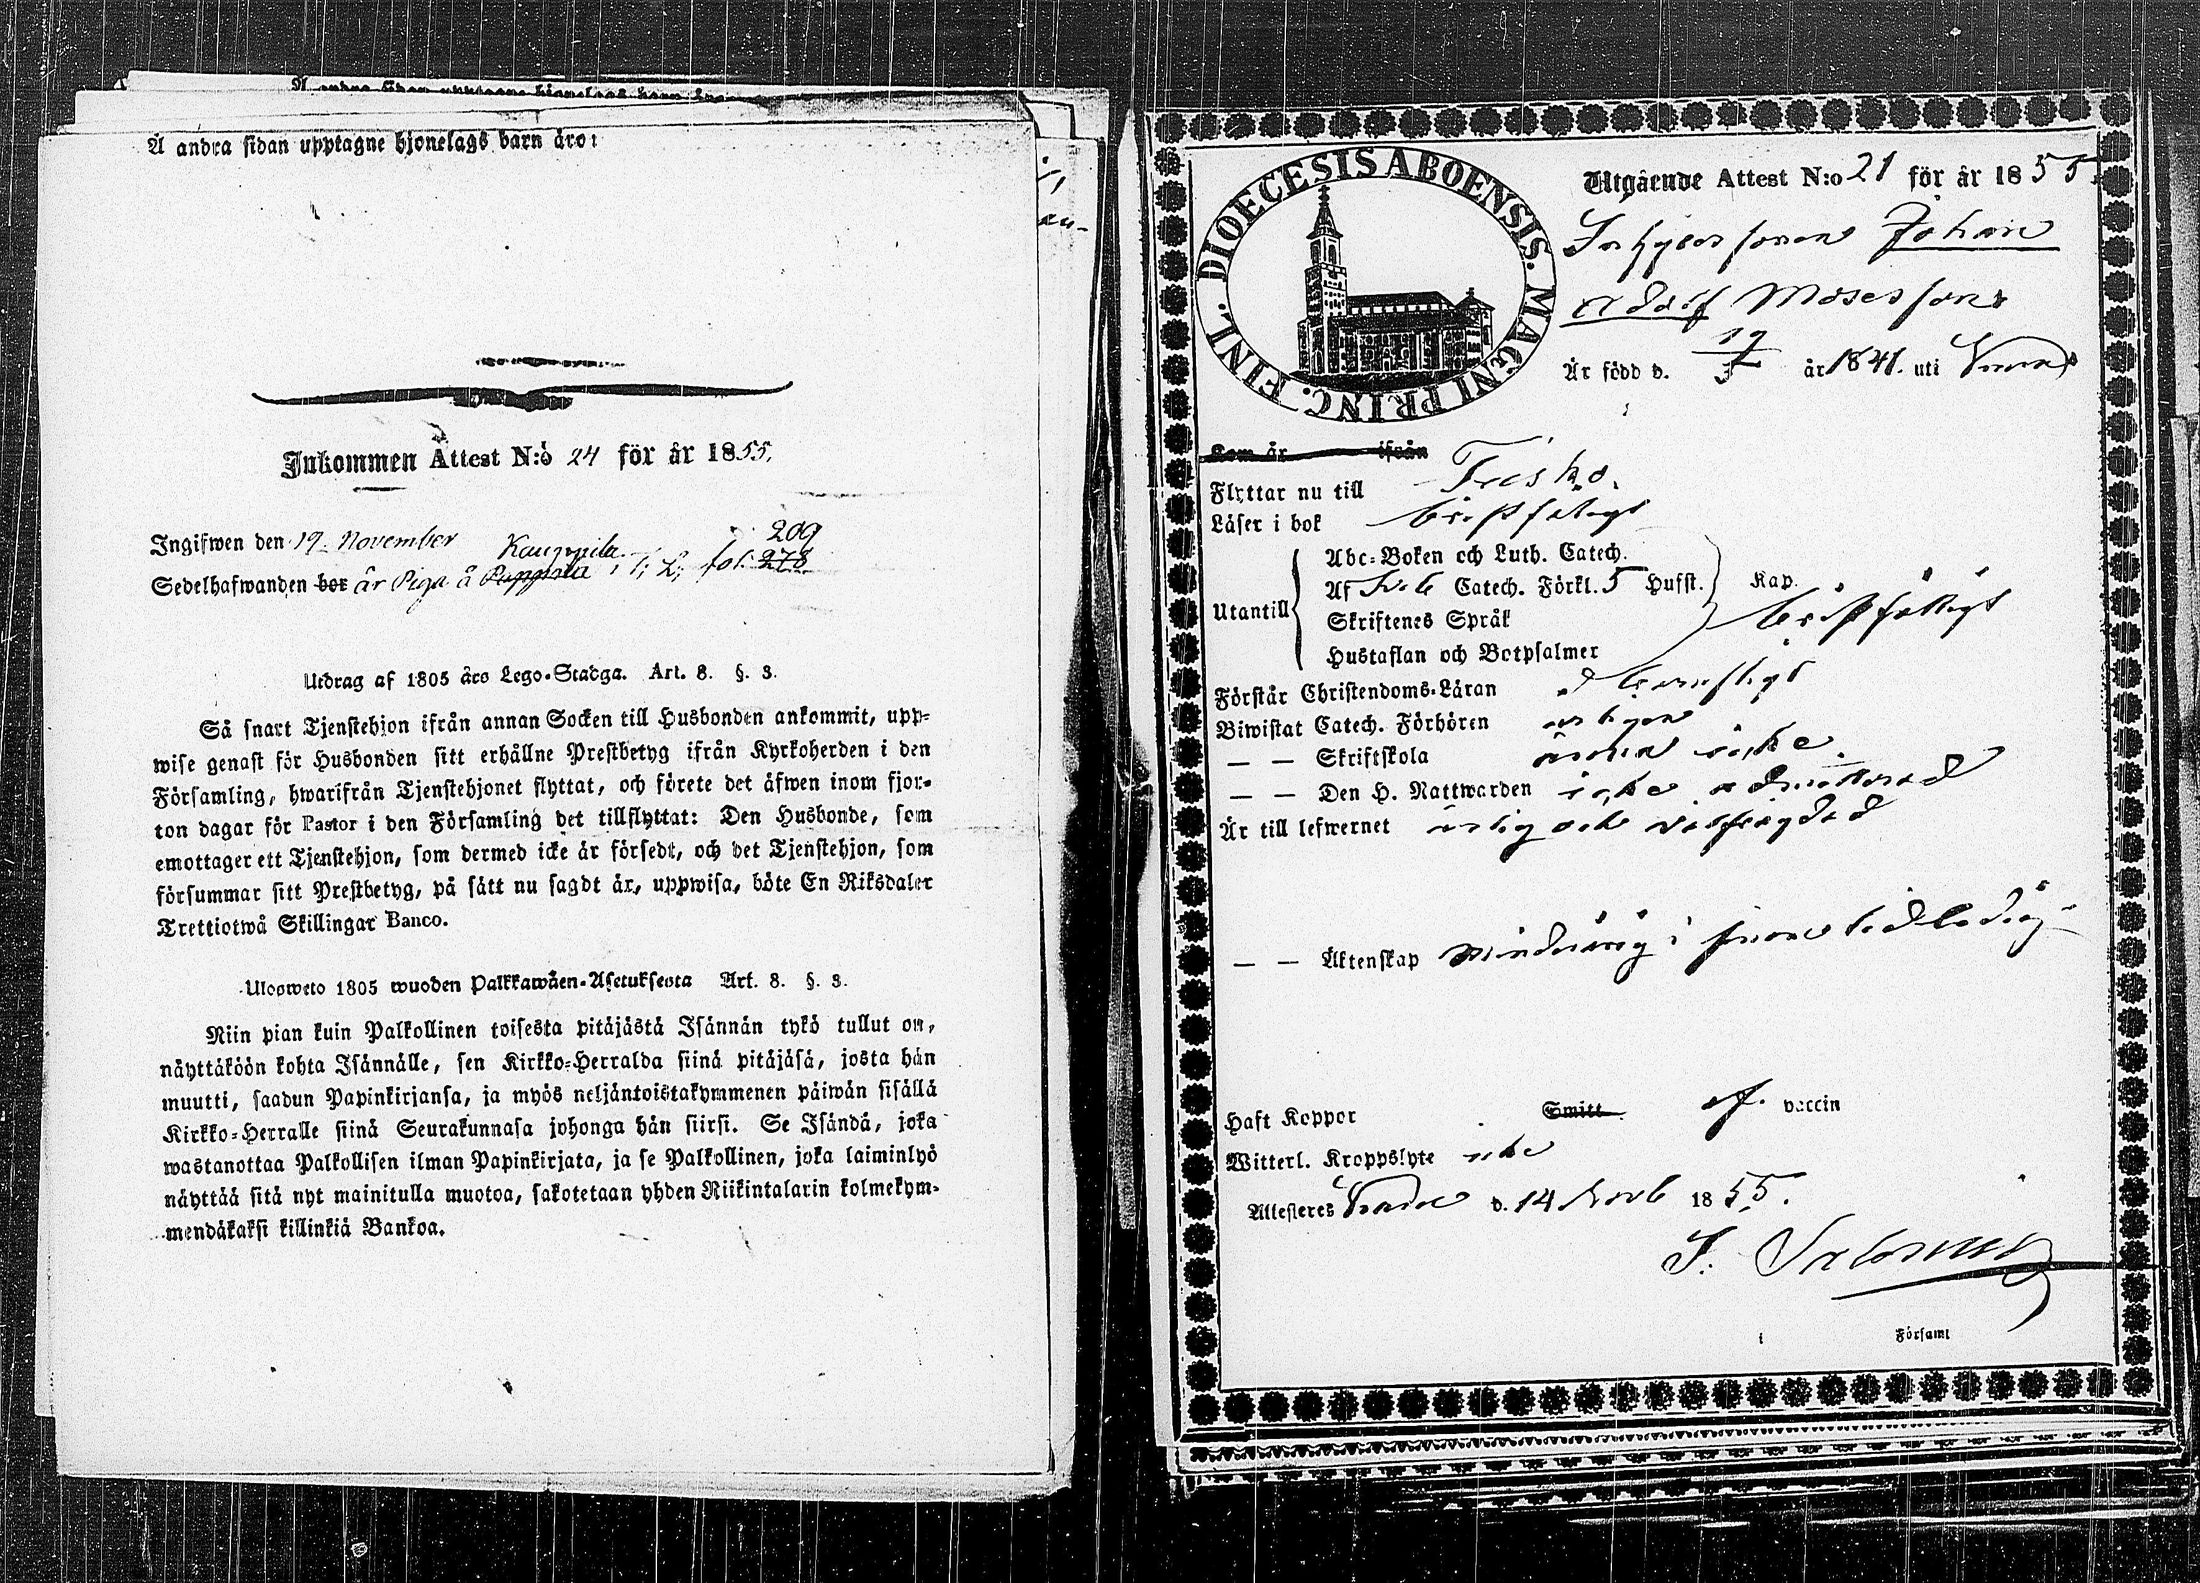 Å andra sidan upptagne hjonelags barn äro:
Inkommen Attest N:o 24 för år 1855.
Ingifwen den 19 November Kauppila 209
Sedelhafwanden bor är Piga å i fol. 278
Utdrag af 1805 års Lego-Stadga. Art. 8. §. 3.
Så snart Tjenstehjon ifrån annan Socken till Husbonden ankommit, upp-
wise genast för Husbonden sitt erhållne Prestbetyg ifrån Kyrkoherden i den
Församling, hwarifrån Tjenstehjonet flyttat, och förete det äfwen inom fjor-
ton dagar för Pastor i den Församling det tillflyttat: Den Husbonde, som
emottager ett Tjenstehjon, som dermed icke är försedt, och det Tjenstehjon, som
försummar sitt Prestbetyg, på sätt nu sagdt är, uppwisa, böte En Riksdaler
Trettiotwå Skillingar Banco.
Ulosweto 1805 wuoden Palkkawäen-Asetuksesta Art. 8. §. 3.
Niin pian kuin Palkollinen toisesta pitäjästä Isännän tykö tullut on,
näyttäköön kohta Isännälle, sen Kirkko-Herralda siinä pitäjäsä, josta hän
muutti, saadun Papinkirjansa, ja myös neljäntoistakymmenen päiwän sisällä
Kirkko-Herralle siinä Seurakunnasa johonga hän siirsi. Se Isändä, joka
wastanottaa Palkollisen ilman Papinkirjata, ja se Palkollinen, joka laiminlyö
näyttää sitä nyt mainitulla muotoa, sakotetaan yhden Riikintalarin kolmekym-
mendäkaksi killinkiä Bankoa.
DIOECESIS ABOENSIS. MAGNI PRINC. FINL.
Utgående Attest N:o 21 för år 1855.
Johan
Adolf Mosesson
Är född d. 19 år 1841. uti
Kom år ifrån
Flyttar nu till
Läser i bok
Abc-Boken och Luth. Catech.
Af Catech. Förkl. 5 Hufst. Kap.
Utantill
Skriftenes Språk
Hustaflan och Botpsalmer
Förstår Christendoms-Läran
Biwistat Catech. Förhören
— — Skriftskola ännu icke
— — Den H. Nattwarden icke admitterad
Är till lefwernet ärlig och
— — Äktenskap minderårig i
Haft Koppor Smitt af vaccin
Witterl. Kroppslyte icke
Attesteres d. 14 Novb 1855.
i Församl